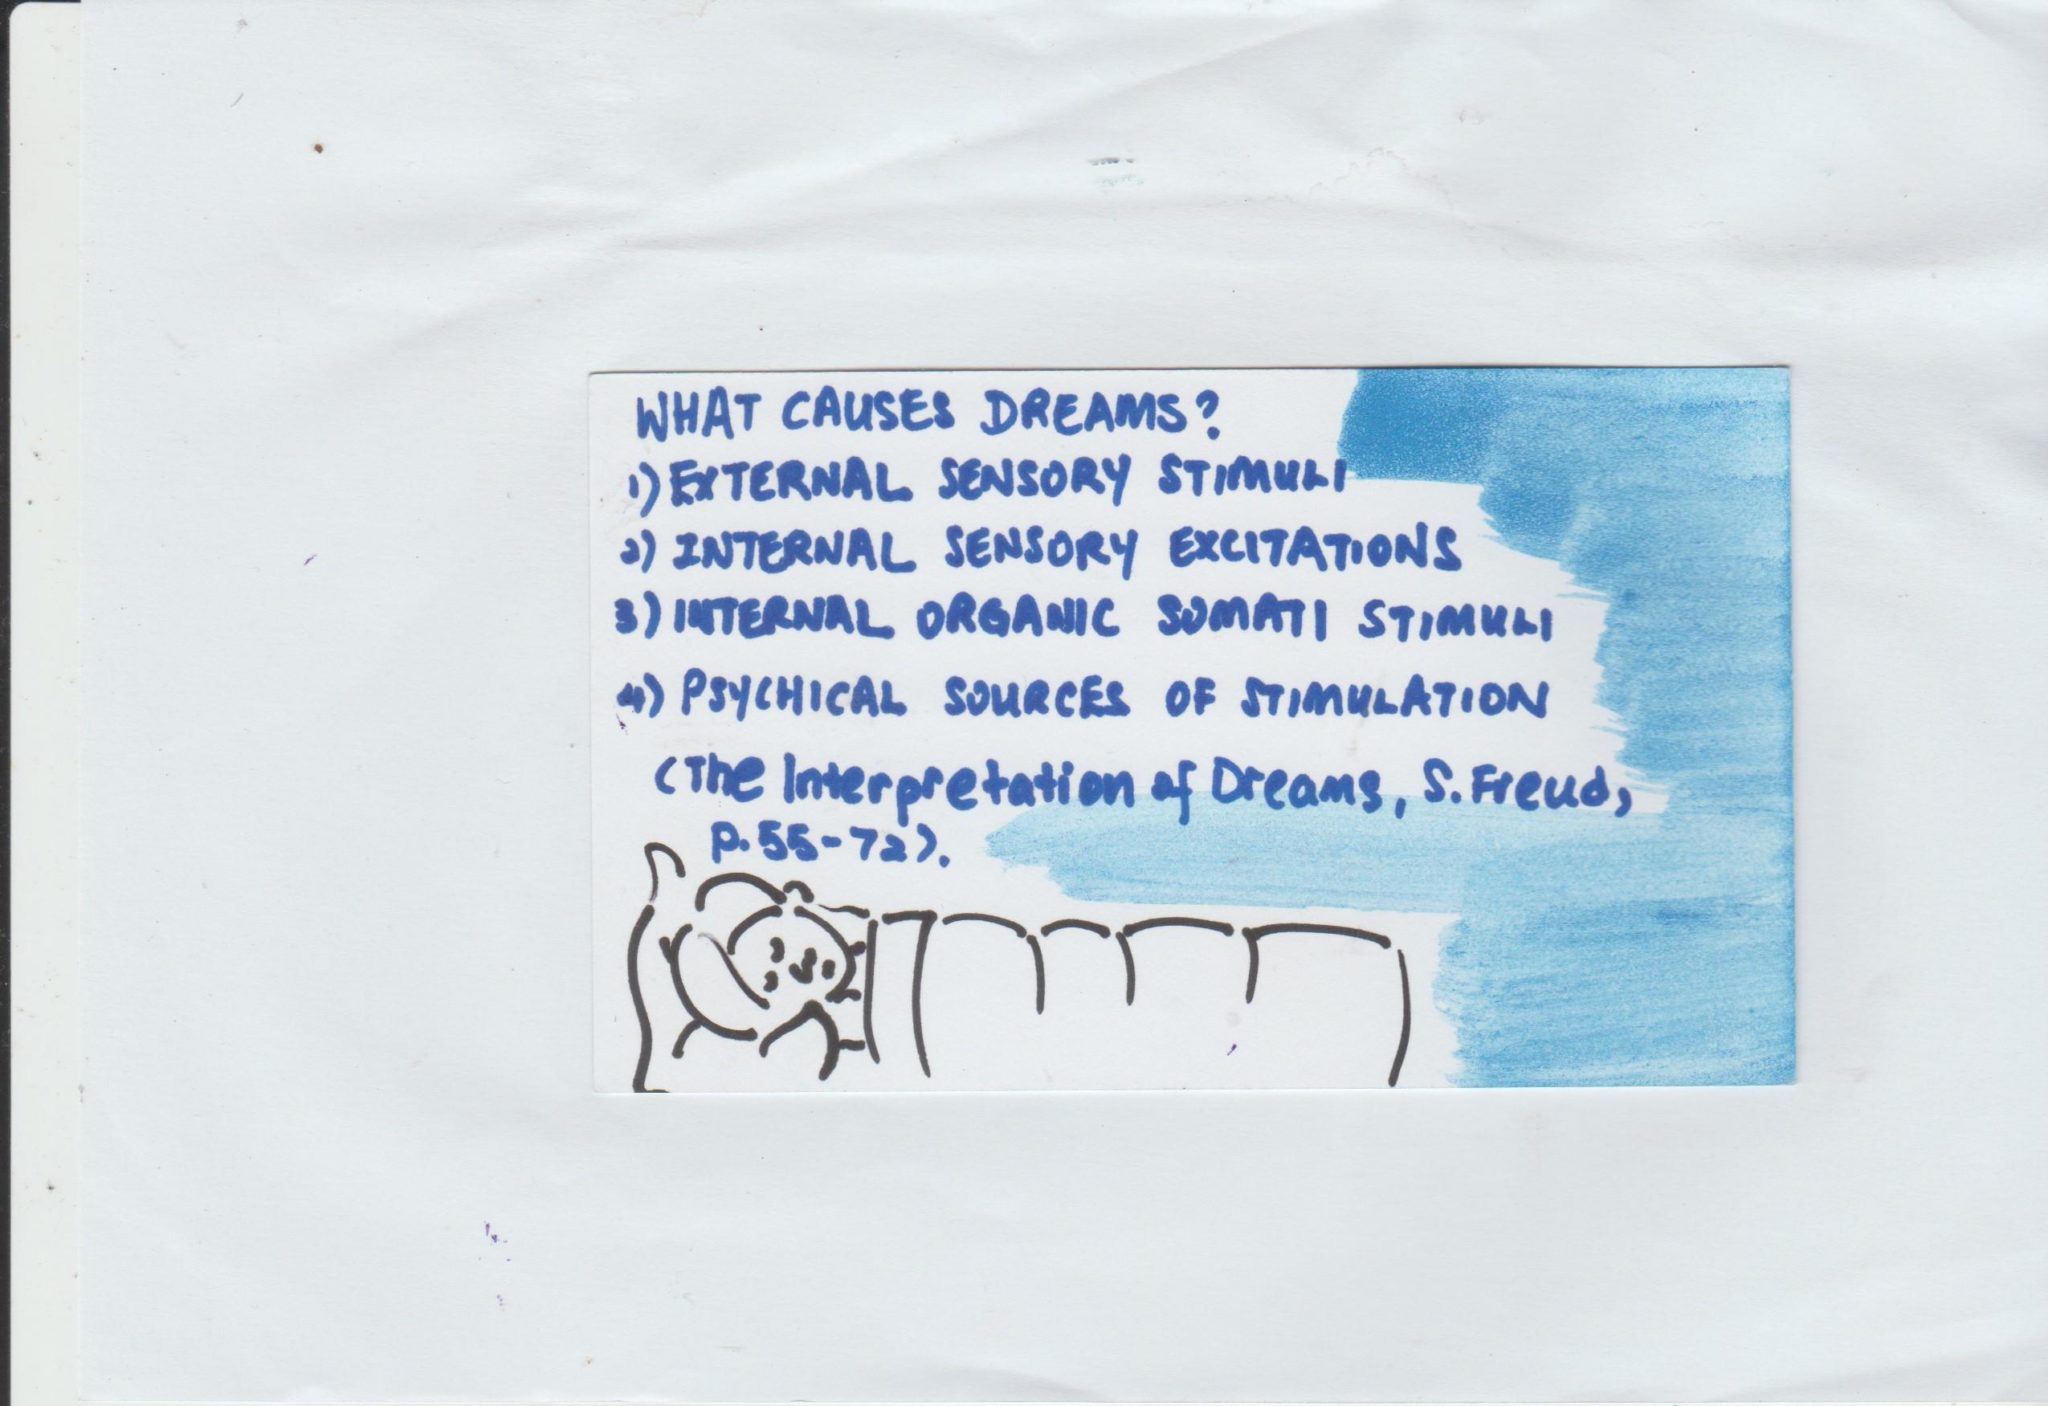 WHAT CAUSES DREAMS?
1) EXTERNAL SENSORY STIMULI
2) INTERNAL SENSORY EXCITATIONS
3) INTERNAL ORGANIC SOMATI STIMULI
4) PSYCHICAL SOURCES OF STIMULATION
(The Interpretation of Dreams, S. Freud,
p. 55-72).